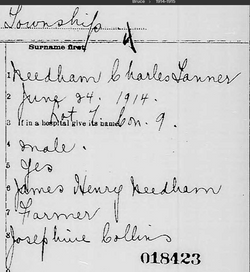 Bruce - 1914-1915
Township
Surname first
1 Needham Charles Tanner
2 June 24, 1914.
Lot 7 Con. 9.
3 If in a hospital give its name
4 male.
5 Yes
6 James Henry Needham
7 Farmer
8 Josephine Collins
018423